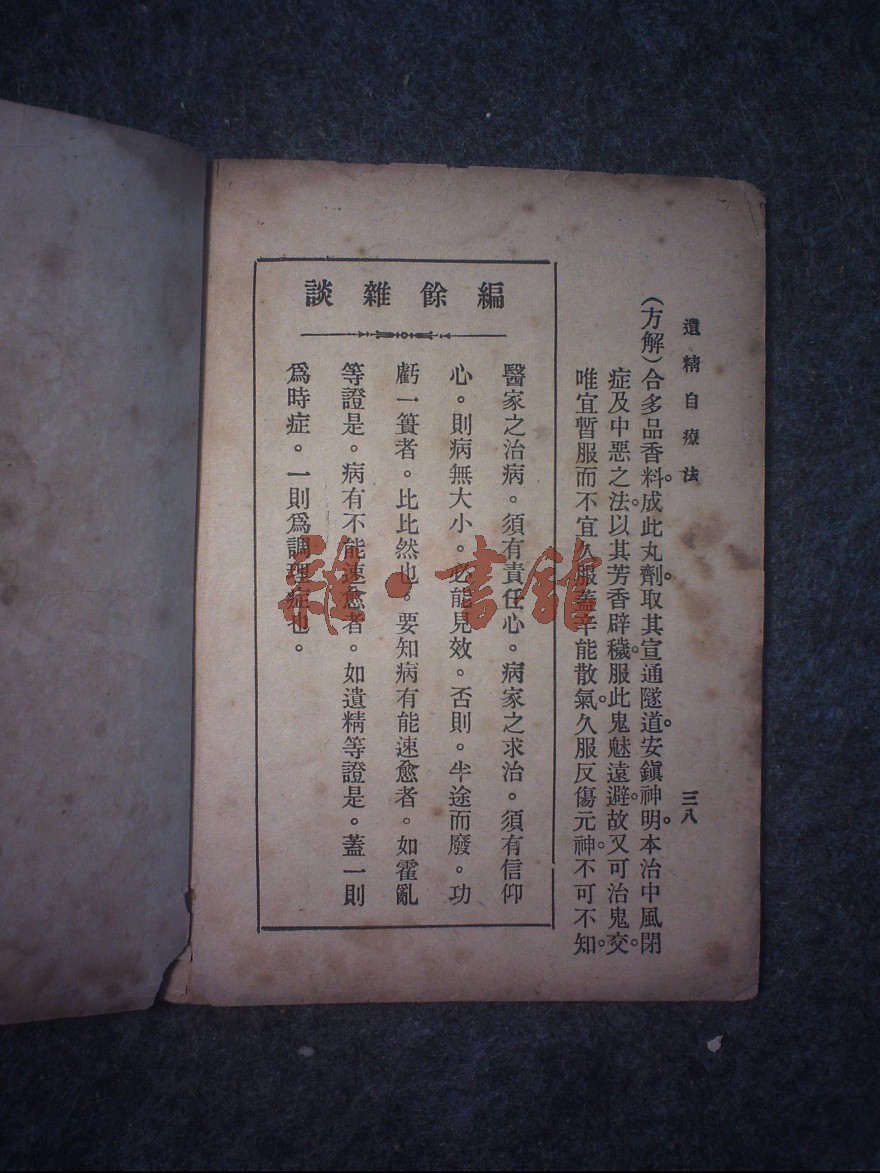 遺精自療法
三八
(方解)合多品香料。成此丸劑。取其宣通隧道。安鎭神明。本治中風閉
症及中惡之法。以其芳香辟穢。服此鬼魅遠避。故又可治鬼交。
唯宜暫服而不宜久服蓋辛能散氣。久服反傷元神。不可不知
編餘雜談
醫家之治病。須有責任心。病家之求治。須有信仰
心。則病無大小。必能見效。否則。半途而廢。功
虧一簣者。比比然也。要知病有能速愈者。如霍亂
等證是。病有不能速愈者。如遺精等證是。蓋一則
爲時症。一則爲調理症也。
雜·書館